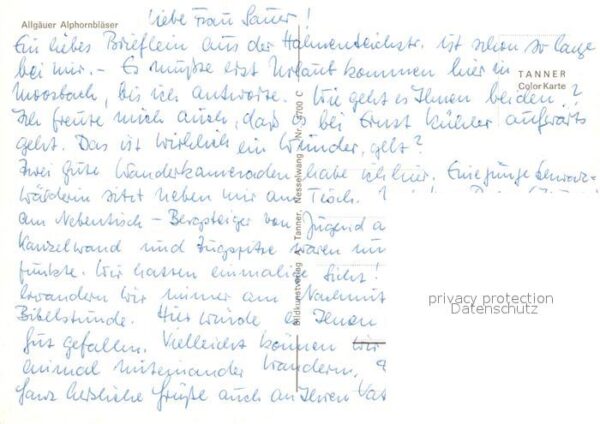 Allgäuer Alphornbläser
Liebe Frau Sauer!
Ein liebes Brieflein aus der Hahnenteichstr. ist schon so lange
bei mir. – Es mußte erst Urlaub kommen hier in
Moosbach, bis ich antworte. Wie geht es Ihnen beiden?
Ich freute mich auch, daß es bei Ernst Kühler aufwärts
geht. Das ist wirklich ein Wunder, gelt?
Zwei gute Wanderkameraden habe ich hier. Eine junge Schwarz-
wälderin sitzt neben mir am Tisch.
am Nebentisch – Bergsteiger von Jugend a
Kanzelwand und Zugspitze waren un
punkte. Wir hatten einmalige Sicht!
erwandern wir immer am Nachmit
Bibelstunde. Hier würde es Ihnen
gut gefallen. Vielleicht können wir
einmal miteinander wandern.
Ganz herzliche Grüße auch an Ihren Vat
TANNER
Color Karte
Bildkunstverlag A. Tanner, Nesselwang Nr. 9700 C
privacy protection
Datenschutz